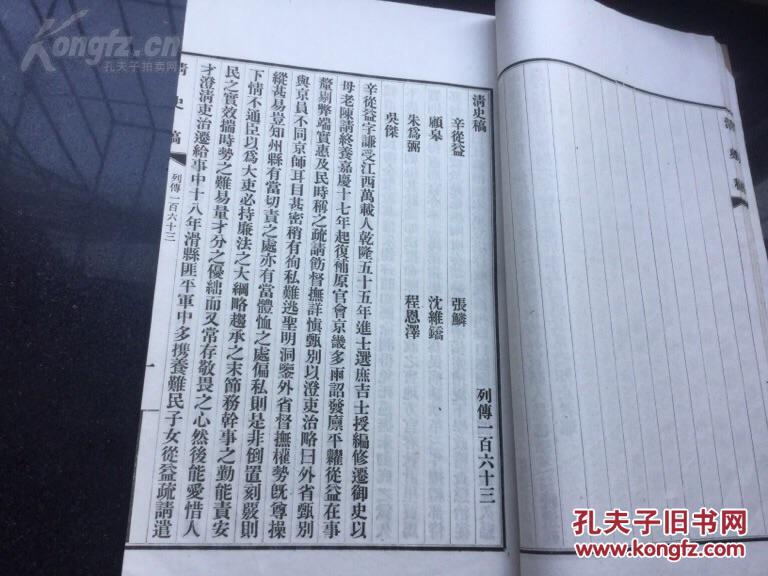 清史稿 列傳一百六十三
辛從益 張鱗
顧皋 沈維鐈
朱爲弼 程恩澤
吳傑
辛從益字謙受江西萬載人乾隆五十五年進士選庶吉士授編修遷御史以
母老陳請終養嘉慶十七年起復補原官會京畿多雨詔發廪平糶從益在事
釐剔弊端實惠及民時稱之疏請飭督撫詳慎甄別以澄吏治略曰外省甄別
與京員不同京師耳目甚密稍有徇私難逃聖明洞鑒外省督撫權勢旣尊操
縱甚易豈知州縣有當切責之處亦有當體恤之處偏私則是非倒置刻覈則
下情不通臣以爲大吏必持廉法之大綱略趨承之末節務幹事之勤能責安
民之實效揣時勢之難易量才分之優絀而又常存敬畏之心然後能愛惜人
才澄淸吏治遷給事中十八年滑縣匪平軍中多攜養難民子女從益疏請遣
清史稿
列傳一百六十三
一
清史稿
Kongfz.cn
孔夫子拍卖网
孔夫子旧书网
www.kongfz.com